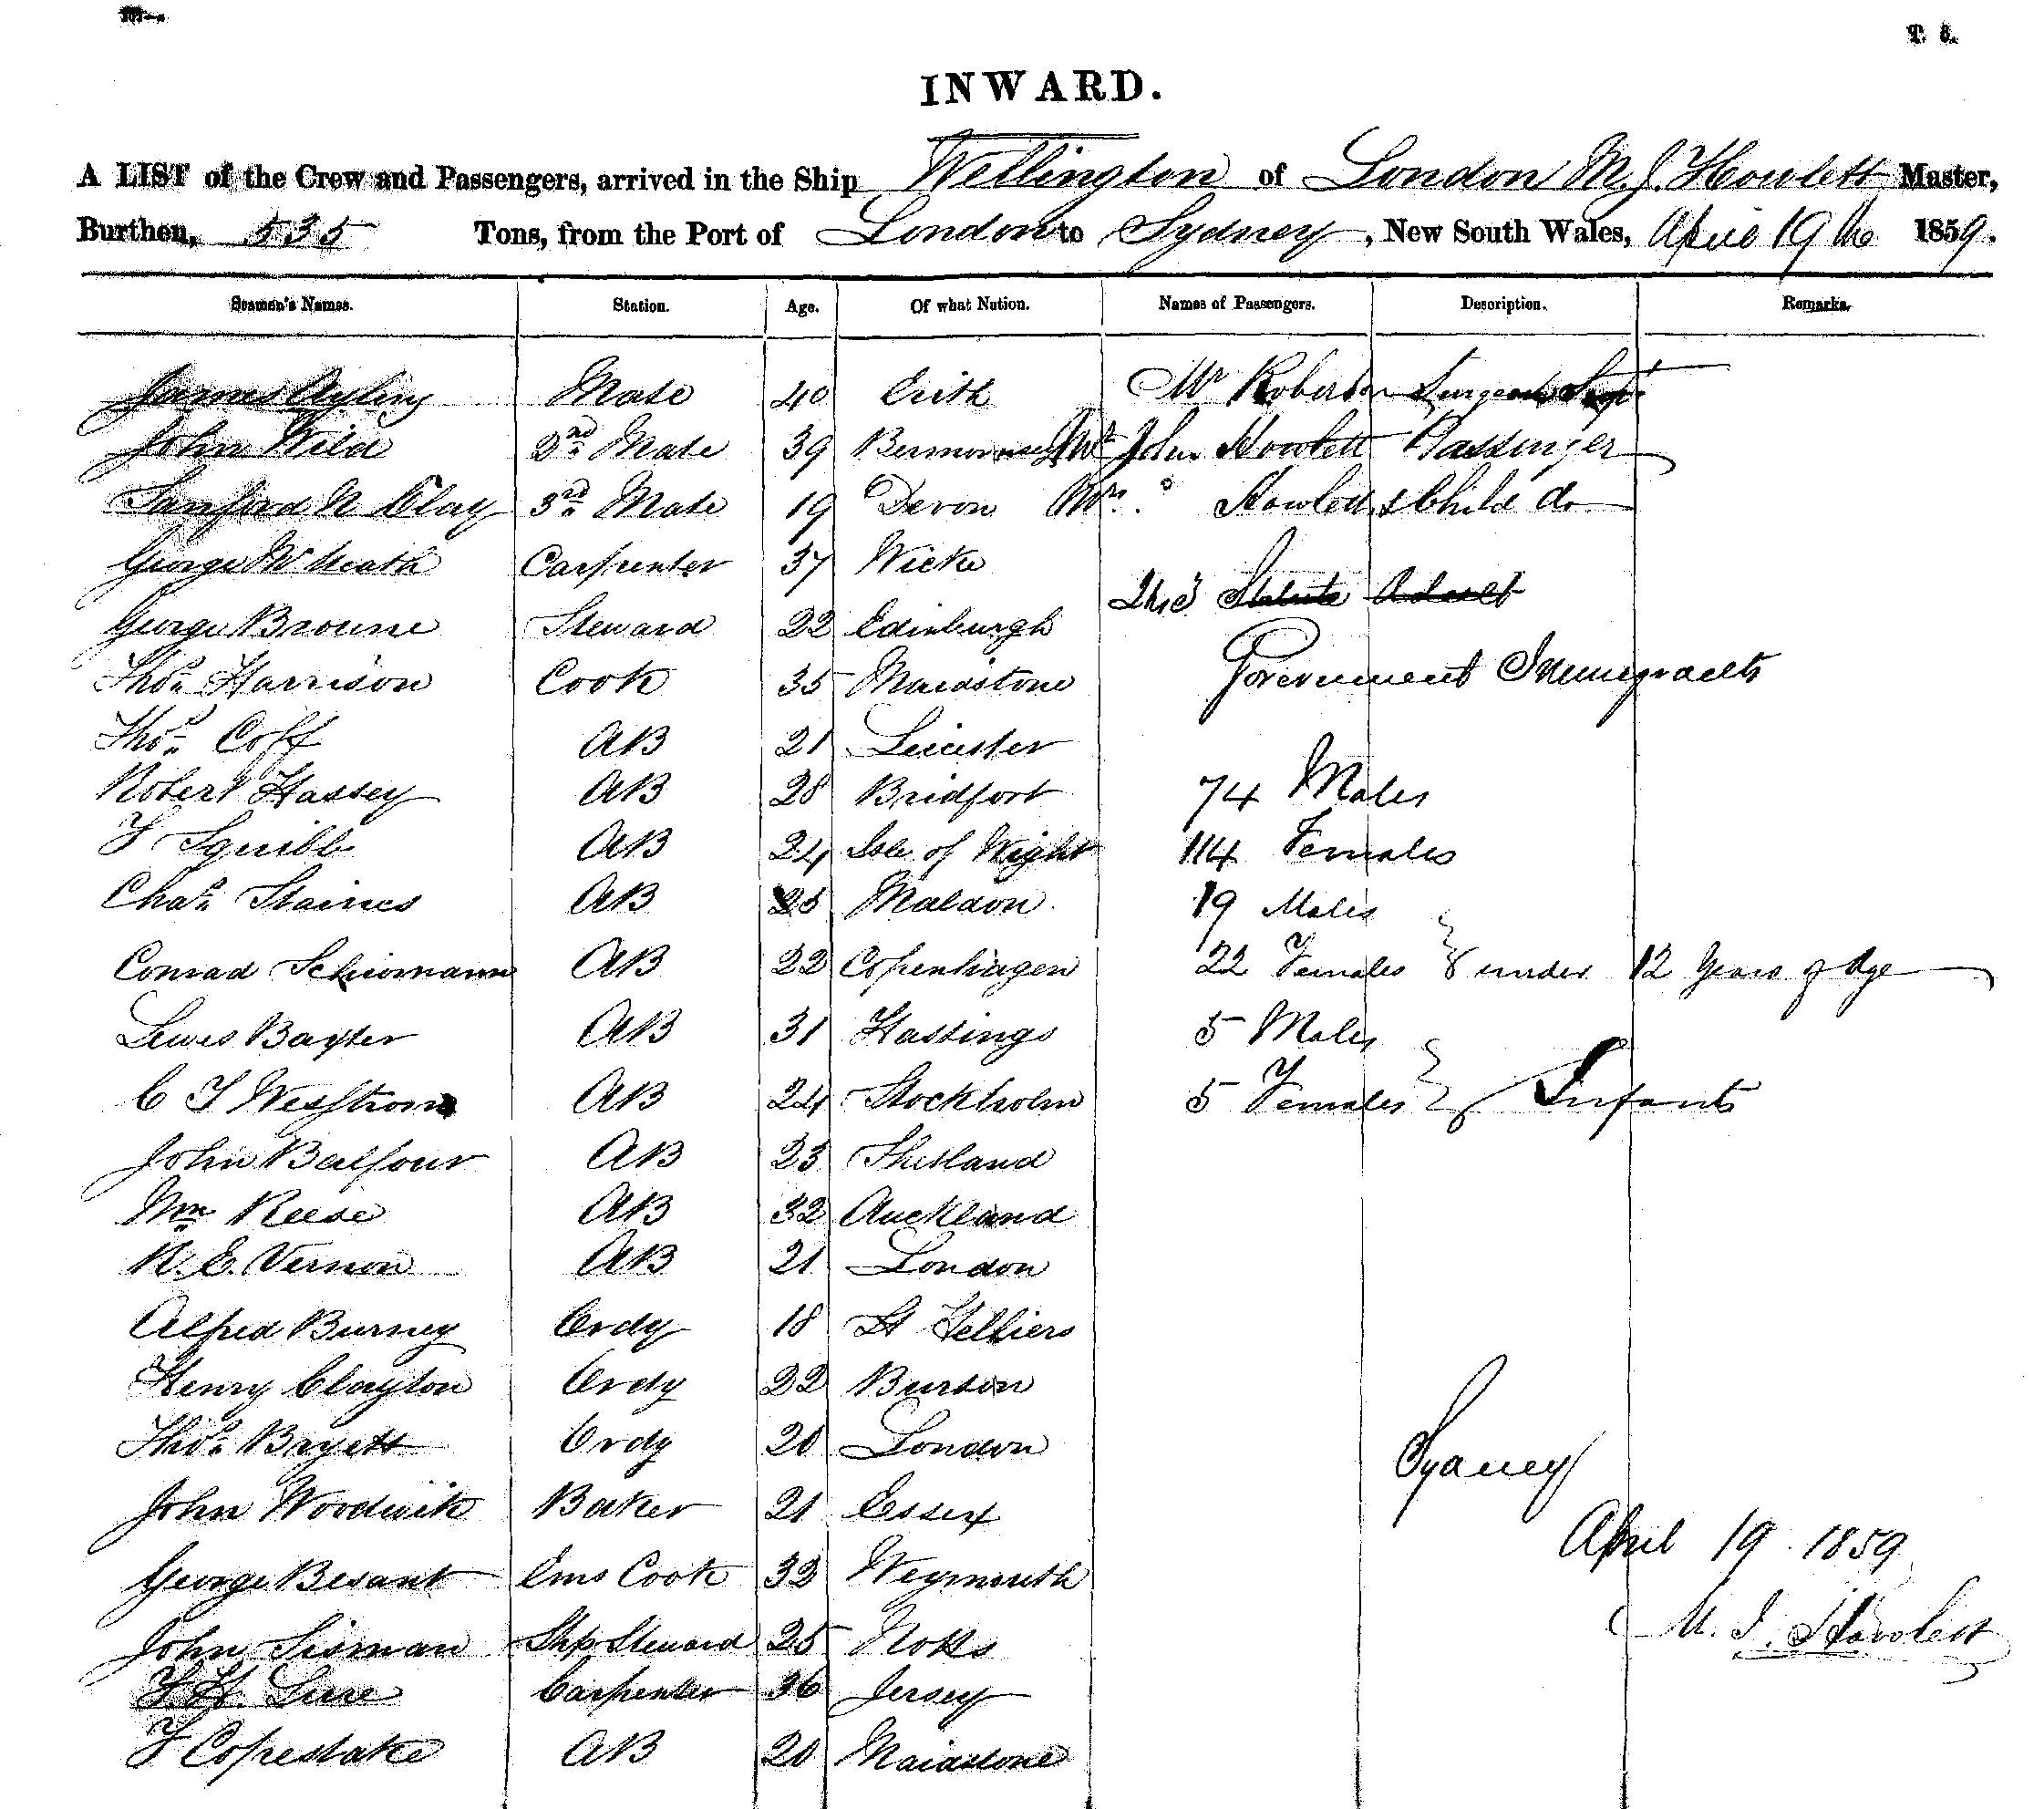 T. 5.
INWARD.
A LIST of the Crew and Passengers, arrived in the Ship Wellington of London M. J. Howlett Master,
Burthen, 535 Tons, from the Port of London to Sydney, New South Wales, April 19th 1859.
Seamen's Names. Station. Age. Of what Nation. Names of Passengers. Description. Remarks.
James Ayling Mate 40 Erith Mr Roberson Surgeon Supt
John Wild 2nd Mate 39 Bermondsey Mr John Howlett Passenger
Sanford N Clay 3rd Mate 19 Devon Mrs. " Howlett & Child do
George McNeath Carpenter 37 Wick
Statute Adult
George Browne Steward 22 Edinburgh
Thos. Harrison Cook 35 Maidstone Government Immigrants
Thos. Coff AB 21 Leicester
Robert Hassey AB 28 Bridfort 74 Males
F Squibb AB 24 Isle of Wight 114 Females
Chas. Staines AB 25 Maldon 19 Males
Conrad AB 22 Copenhagen 22 Females under 12 Years of Age
Lewes Baxter AB 31 Hastings 5 Males
C F Wesstrom AB 24 Stockholm 5 Females Infants
John Balfour AB 23 Shetland
Wm Reese AB 32 Auckland
R. E. Vernon AB 21 London
Alfred Burney Ordy 18 St Helliers
Henry Clayton Ordy 22 Burton
Thos. Bryett Ordy 20 London
Sydney
John Woodwik Baker 21 Essex
April 19 1859
George Besant Ems Cook 32 Weymouth
M. J. Howlett
John Sisman Shp Steward 25 Notts
F. H. Sure Carpenter 36 Jersey
F Copestake AB 20 Maidstone